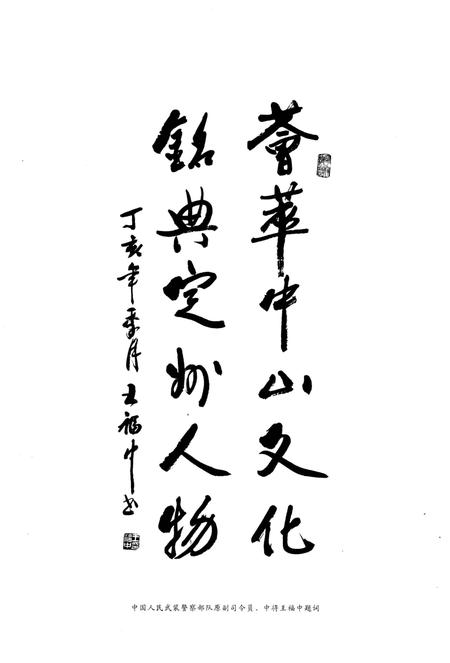 薈萃中山文化
銘典定州人物
丁亥年季月王福中书
中国人民武装警察部队原副司令员、中将王福中题词